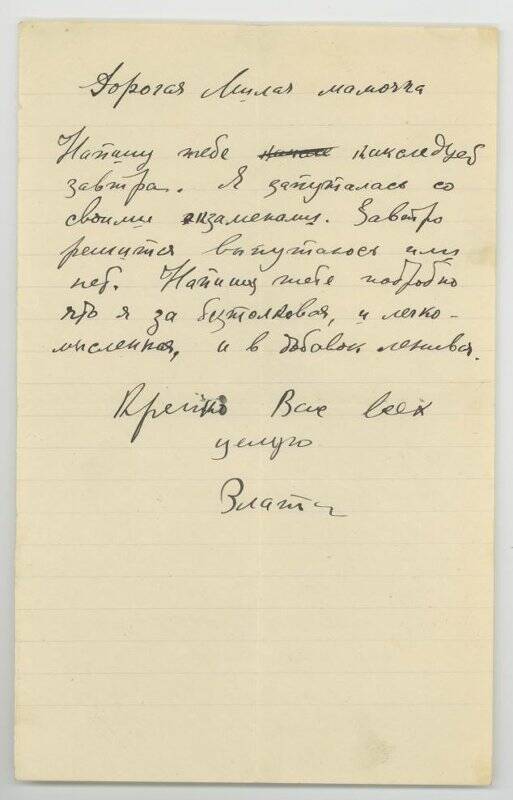 Дорогая Милая мамочка
Напишу тебе какследует
завтра. Я запуталась со
своими экзаменами. Завтро
решится выпутаюсь или
нет. Напишу тебе подробно
что я за бузтолковая, и легко-
мысленная, и в добавок ленивая.
Крепко Вас всех
целую
Злата